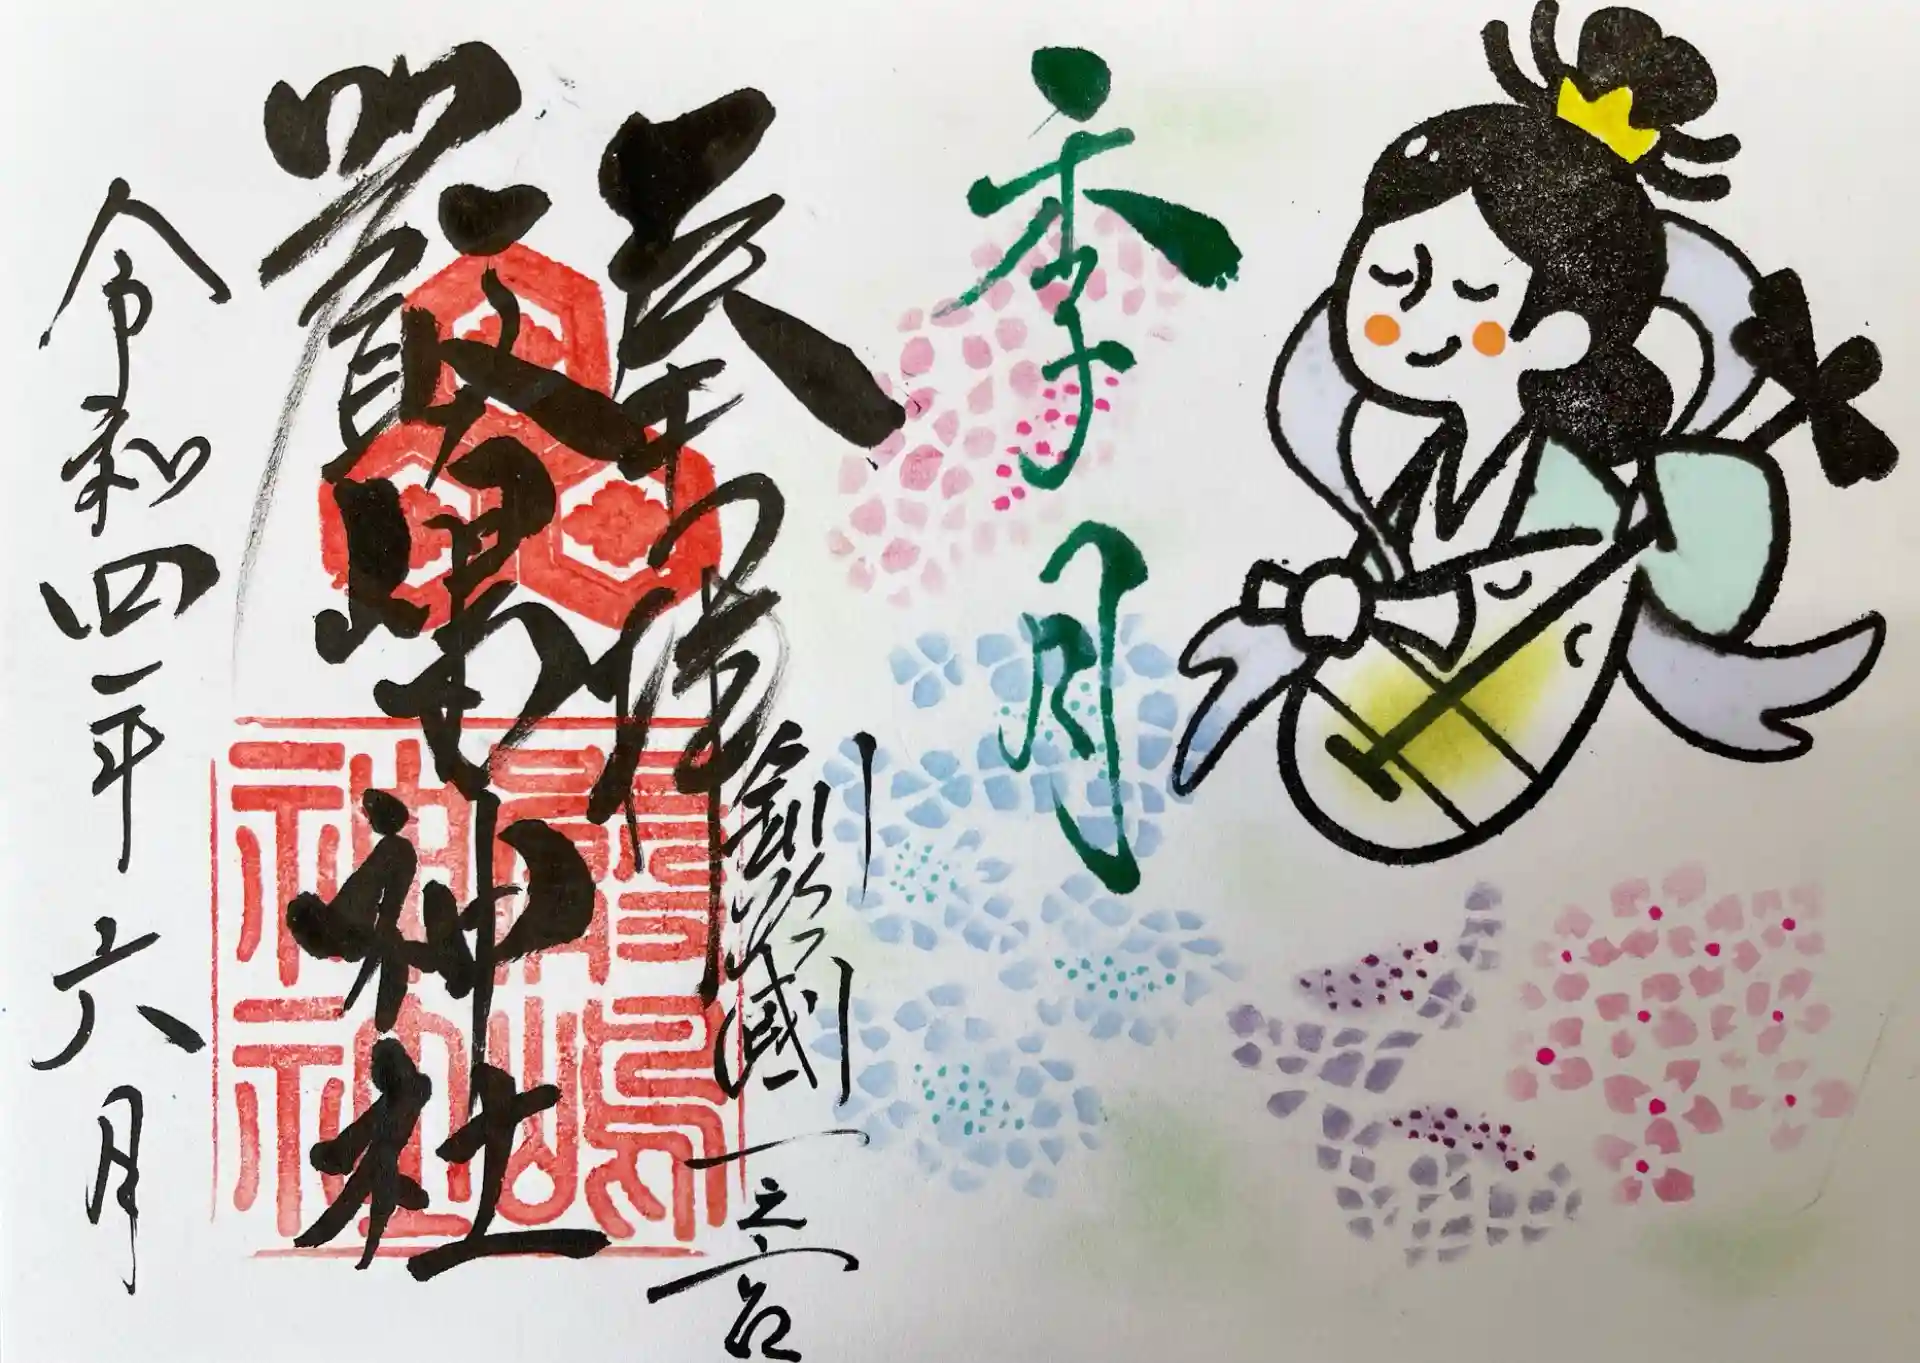 季月
奉拝
釧路國一之宮
嚴島神社
令和四年六月
嚴嶋神社